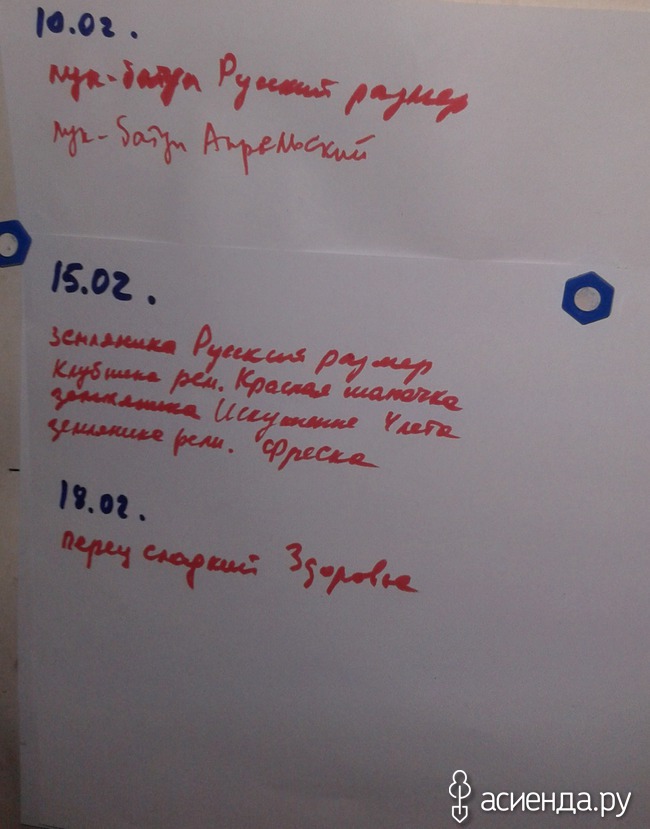 10.02.
лук-батун Русский размер
лук-батун Апрельский
15.02.
земляника Русский размер
клубника рем. Красная шапочка
земляника Искушение 4 лета
земляника рем. Фреска
18.02.
перец сладкий Здоровье
асиенда.ру